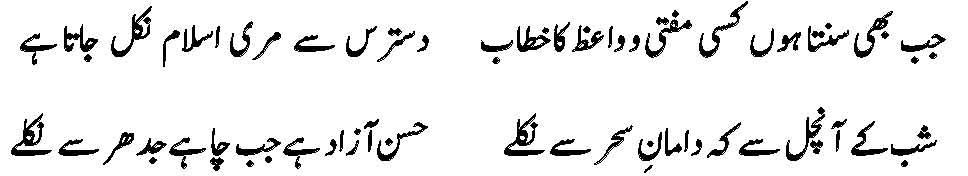 جب بھی سنتا ہوں کسی مفتی و واعظ کا خطاب دسترس سے مری اسلام نکل جاتا ہے
شب کے آنچل سے کہ دامانِ سحر سے نکلے حسن آزاد ہے جب چاہے جدھر سے نکلے